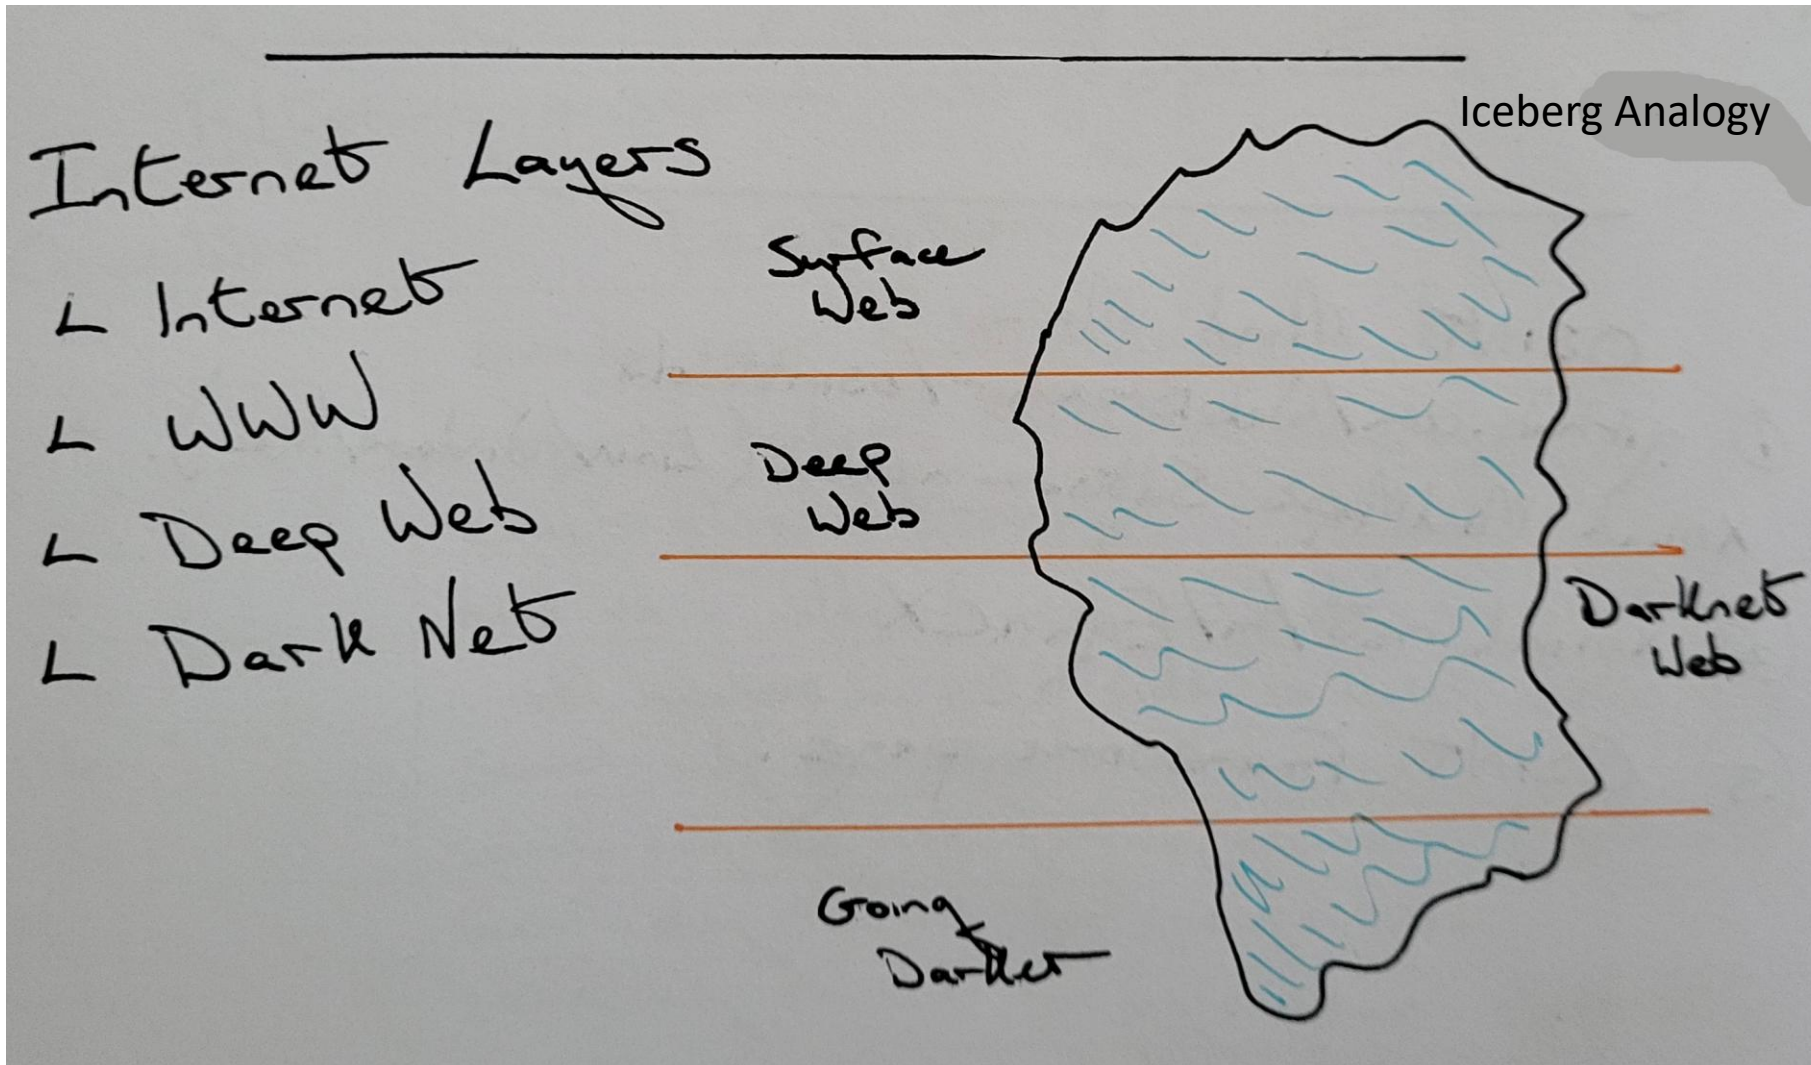 Iceberg Analogy
Internet Layers
Internet
WWW
Deep Web
Dark Net
Surface
Web
Deep
Web
Darknet
Web
Going
Darker